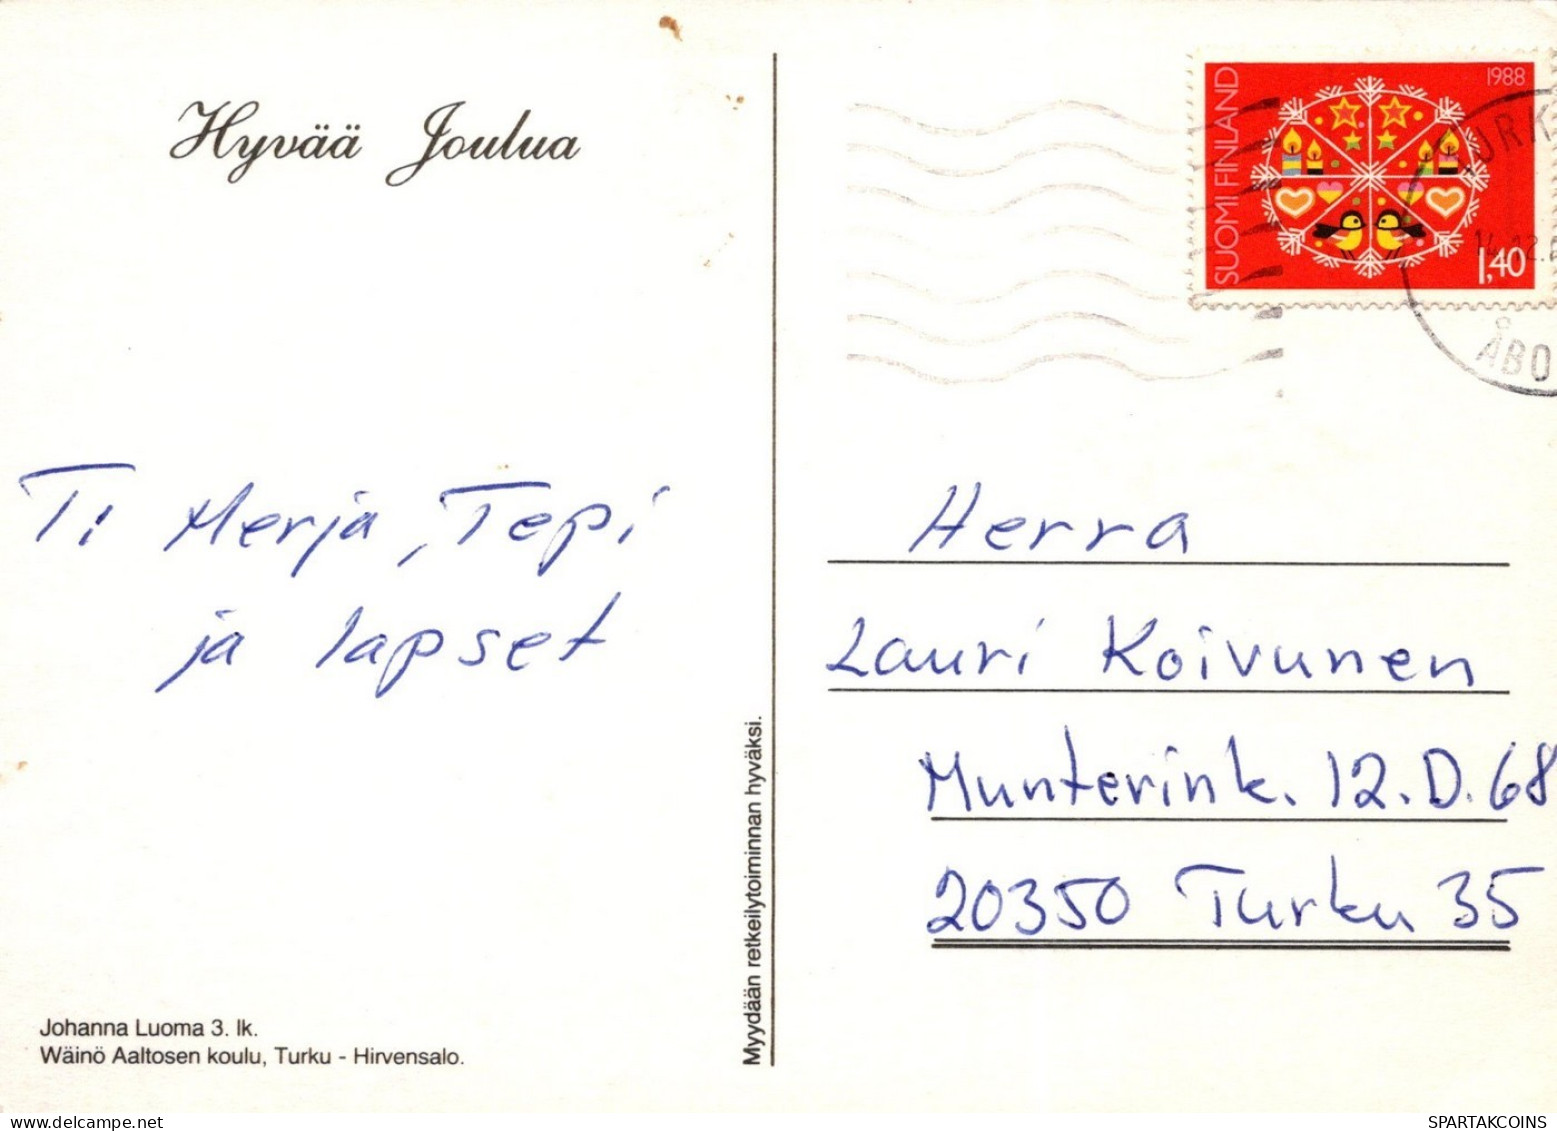 Hyvää Joulua
Ti Merja, Tepi
ja lapset
Johanna Luoma 3. lk.
Wäinö Aaltosen koulu, Turku - Hirvensalo.
Myydään retkeilytoiminnan hyväksi.
SUOMI FINLAND
1988
1,40
TURK
14.12.
ÅBO
Herra
Lauri Koivunen
Munterink. 12.D.68
20350 Turku 35
SPARTAKCOINS